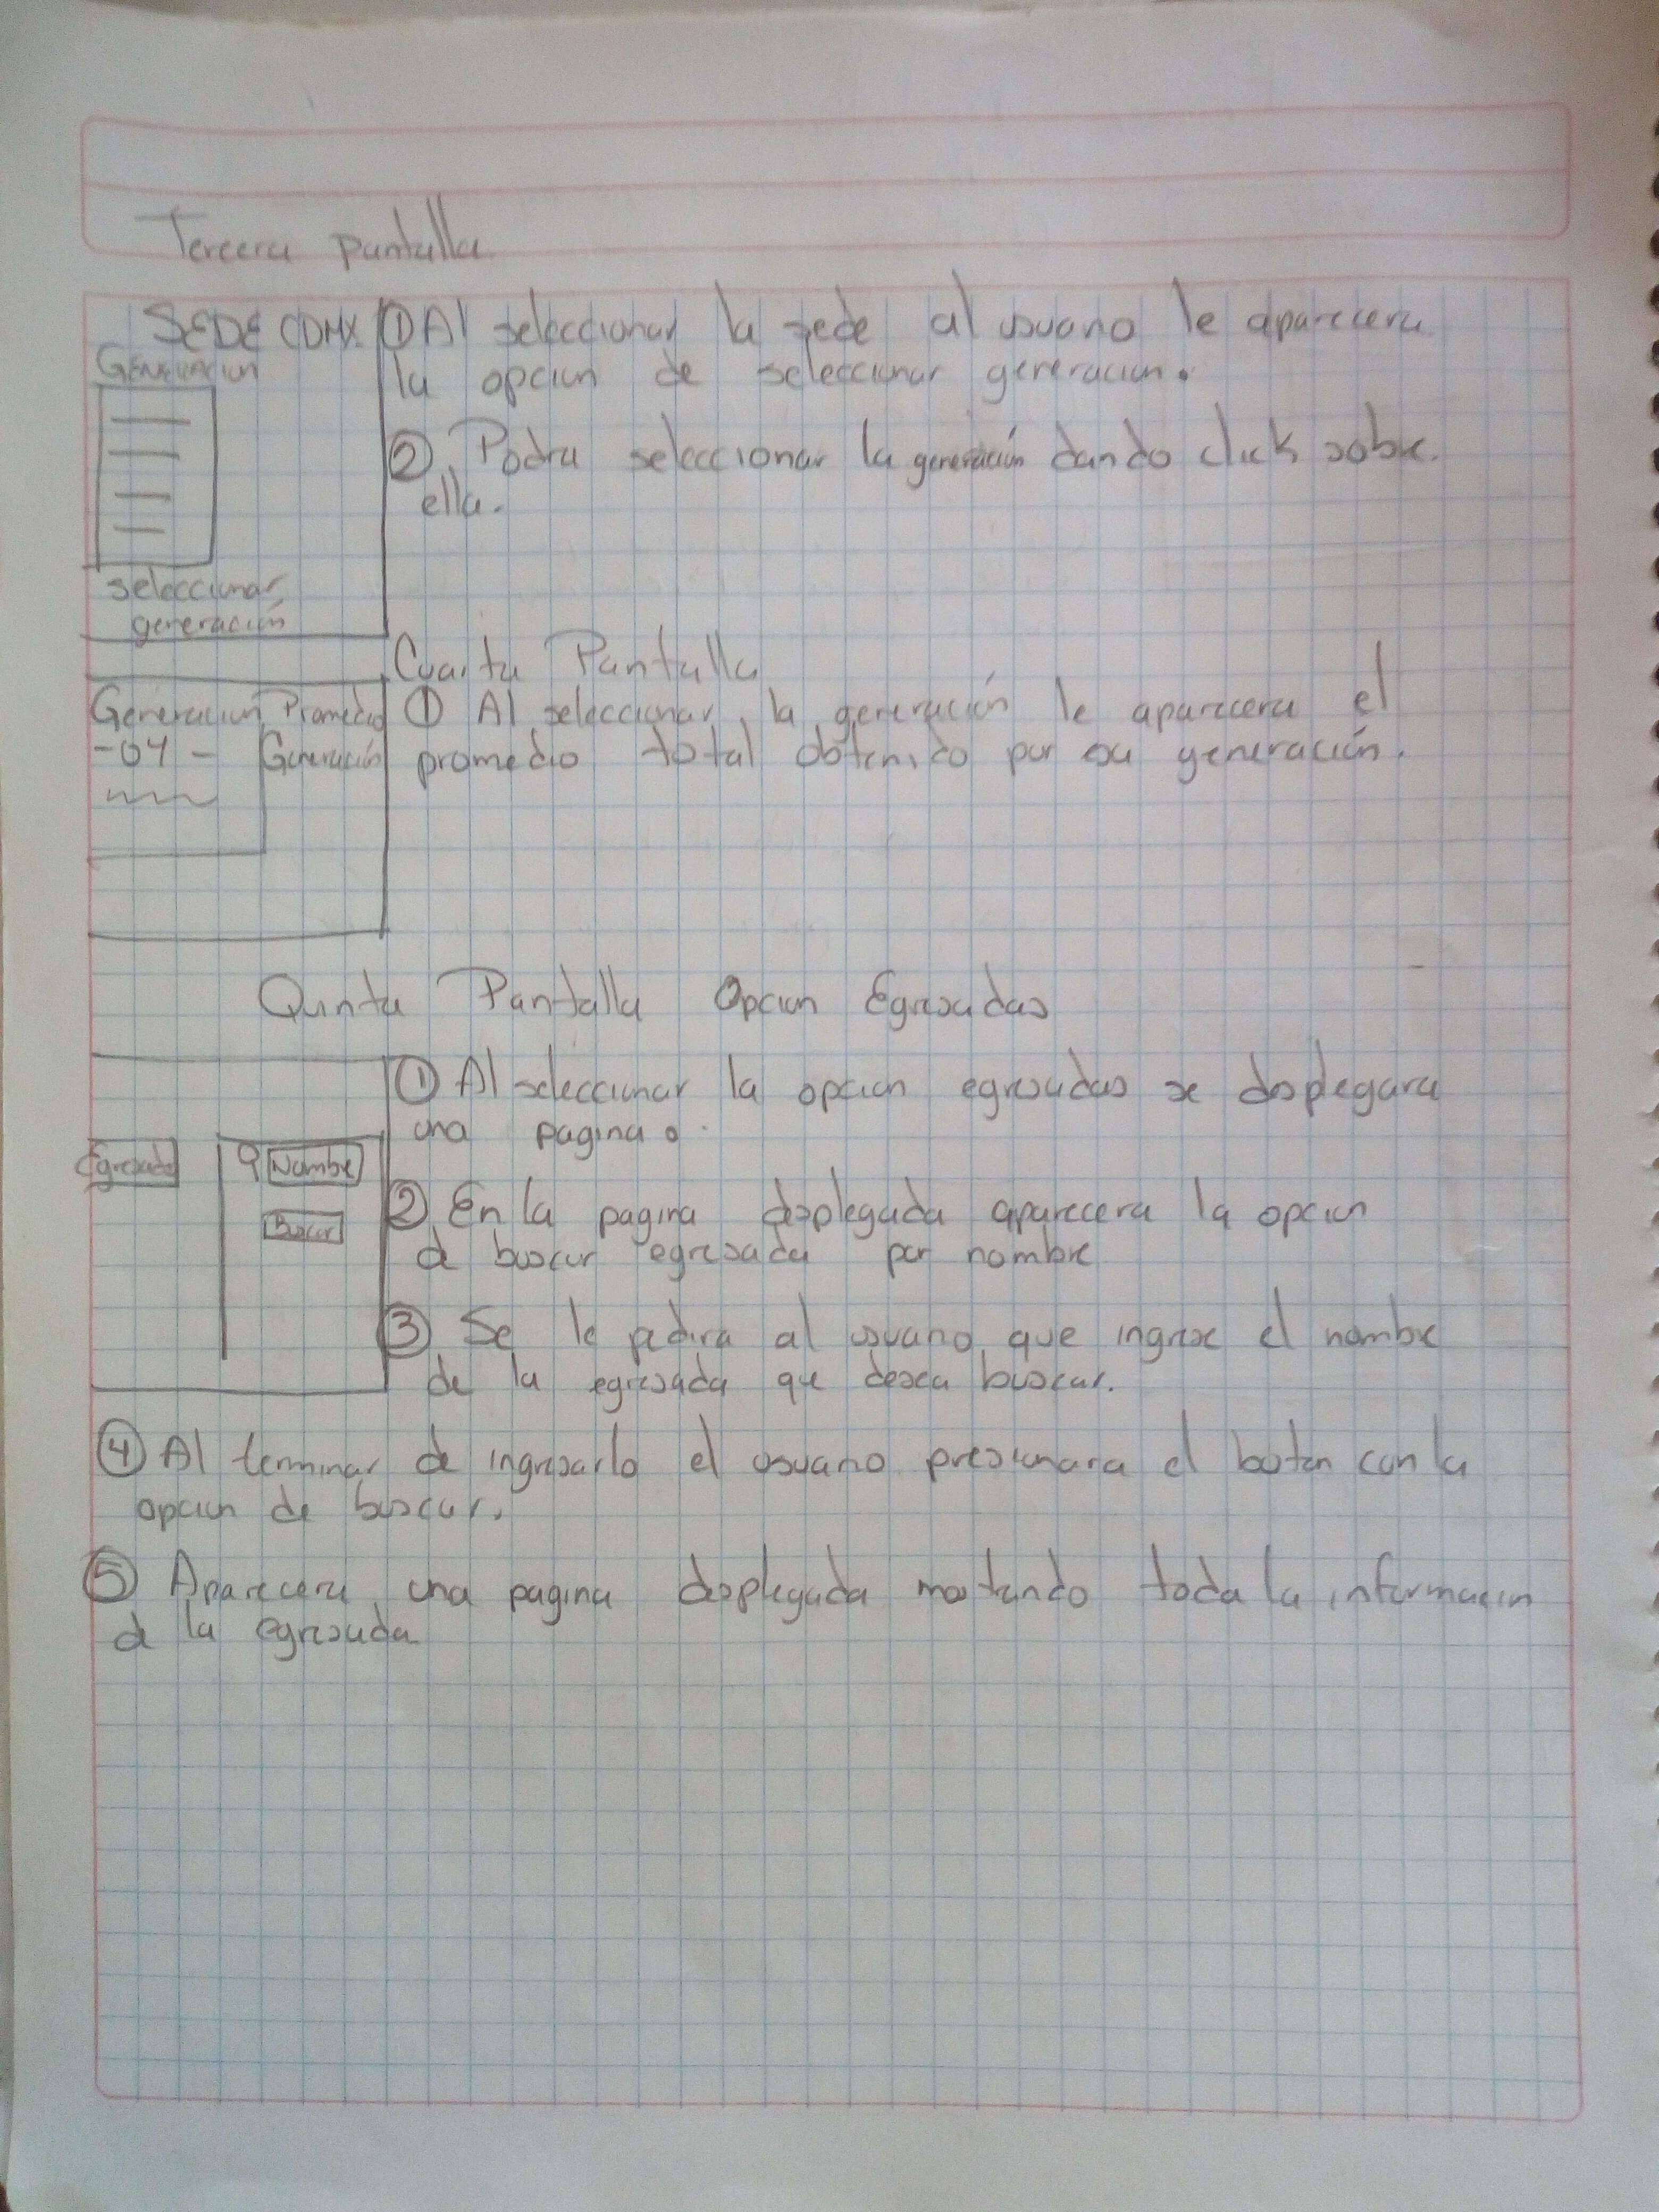 Tercera Pantalla
SEDE CDMX
Generacion
seleccionar
generación
① Al seleccionar la sede al usuario le aparecera
la opcion de seleccionar generacion.
② Podra seleccionar la generación dando click sobre
ella.
Cuarta Pantalla
Generacion
-04-
Promedio
Generación
① Al seleccionar la generación le aparecera el
promedio total obtenido por esa generación.
Quinta Pantalla Opcion Egresadas
Egresada
Nombre
Buscar
① Al seleccionar la opcion egresadas se desplegara
una pagina.
② En la pagina desplegada aparecera la opcion
de buscar egresada por nombre
③ Se le pedira al usuario que ingrese el nombre
de la egresada que desea buscar.
④ Al terminar de ingresarlo el usuario presionara el boton con la
opcion de buscar.
⑤ Aparecera una pagina desplegada mostando toda la informacion
de la egresada